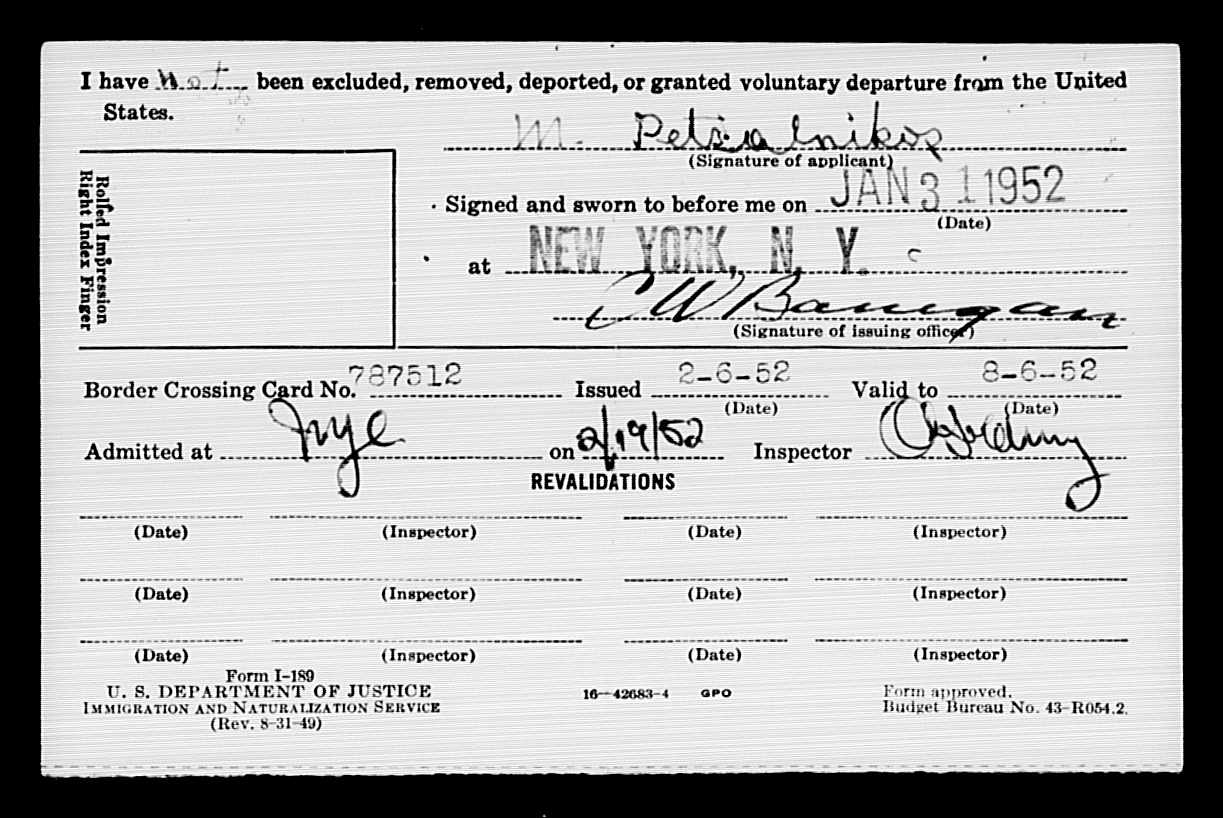 I have not been excluded, removed, deported, or granted voluntary departure from the United
States.
M. Petsalnikos
(Signature of applicant)
Rolled Impression
Right Index Finger
Signed and sworn to before me on JAN 31 1952
(Date)
at NEW YORK, N. Y.
C W Banigan
(Signature of issuing officer)
Border Crossing Card No. 787512 Issued 2-6-52 Valid to 8-6-52
(Date) (Date)
Admitted at nyc on 2/19/52 Inspector
REVALIDATIONS
(Date) (Inspector) (Date) (Inspector)
(Date) (Inspector) (Date) (Inspector)
(Date) (Inspector) (Date) (Inspector)
Form I-189
U. S. DEPARTMENT OF JUSTICE
IMMIGRATION AND NATURALIZATION SERVICE
(Rev. 8-31-49)
16—42683-4 GPO
Form approved.
Budget Bureau No. 43-R054.2.